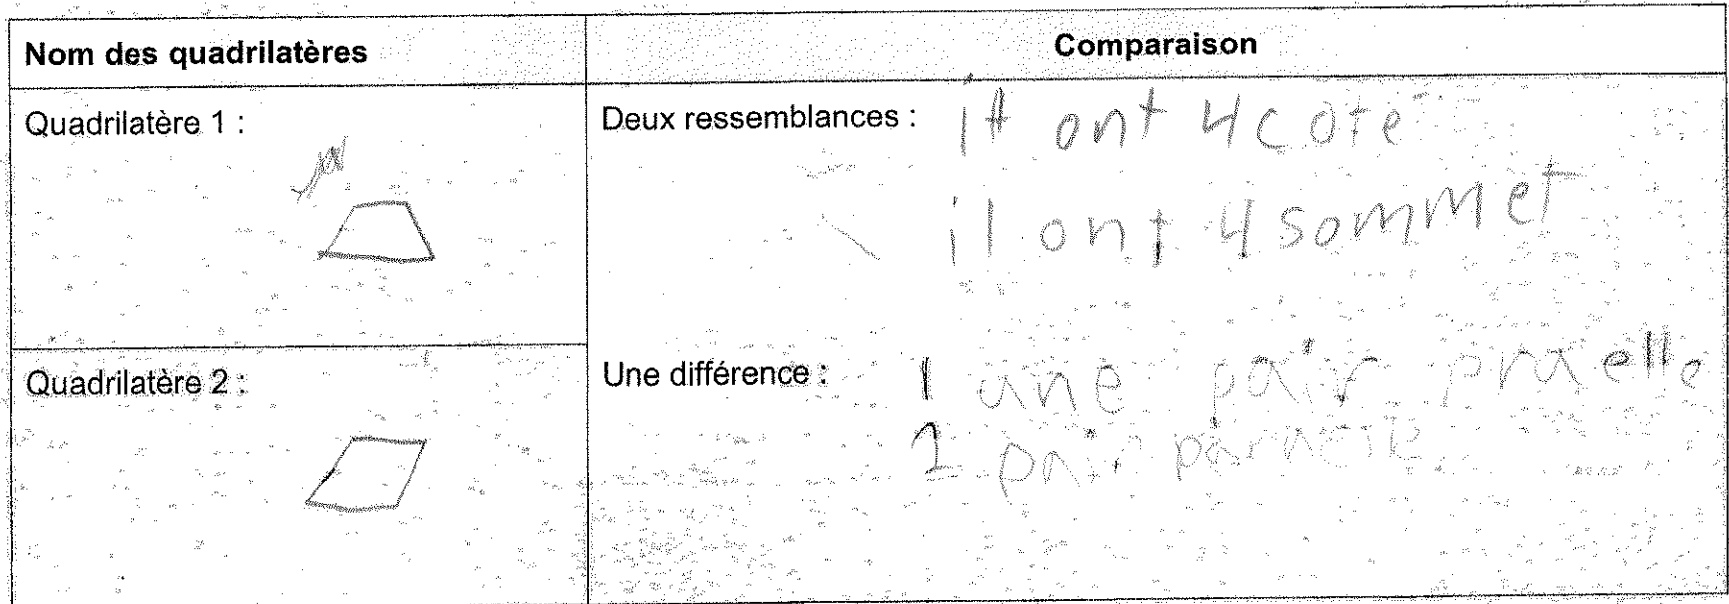 Nom des quadrilatères
Comparaison
Quadrilatère 1 :
Deux ressemblances : il ont 4 cote
il ont 4 sommet
Quadrilatère 2 :
Une différence : 1 une pair
pair